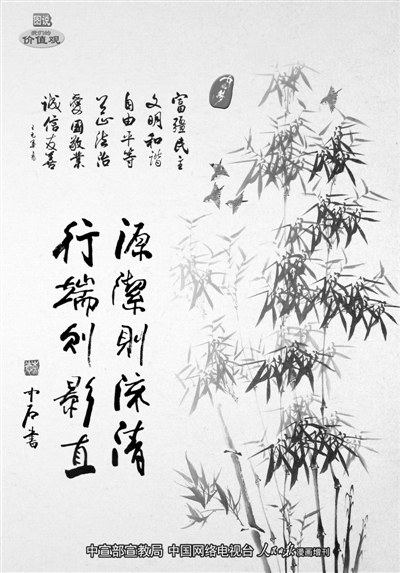 图说
我们的
价值观
富强民主
文明和谐
自由平等
公正法治
愛國敬業
誠信友善
源潔則流清
行端则影直
中石書
中宣部宣教局 中国网络电视台 人民日报漫画增刊